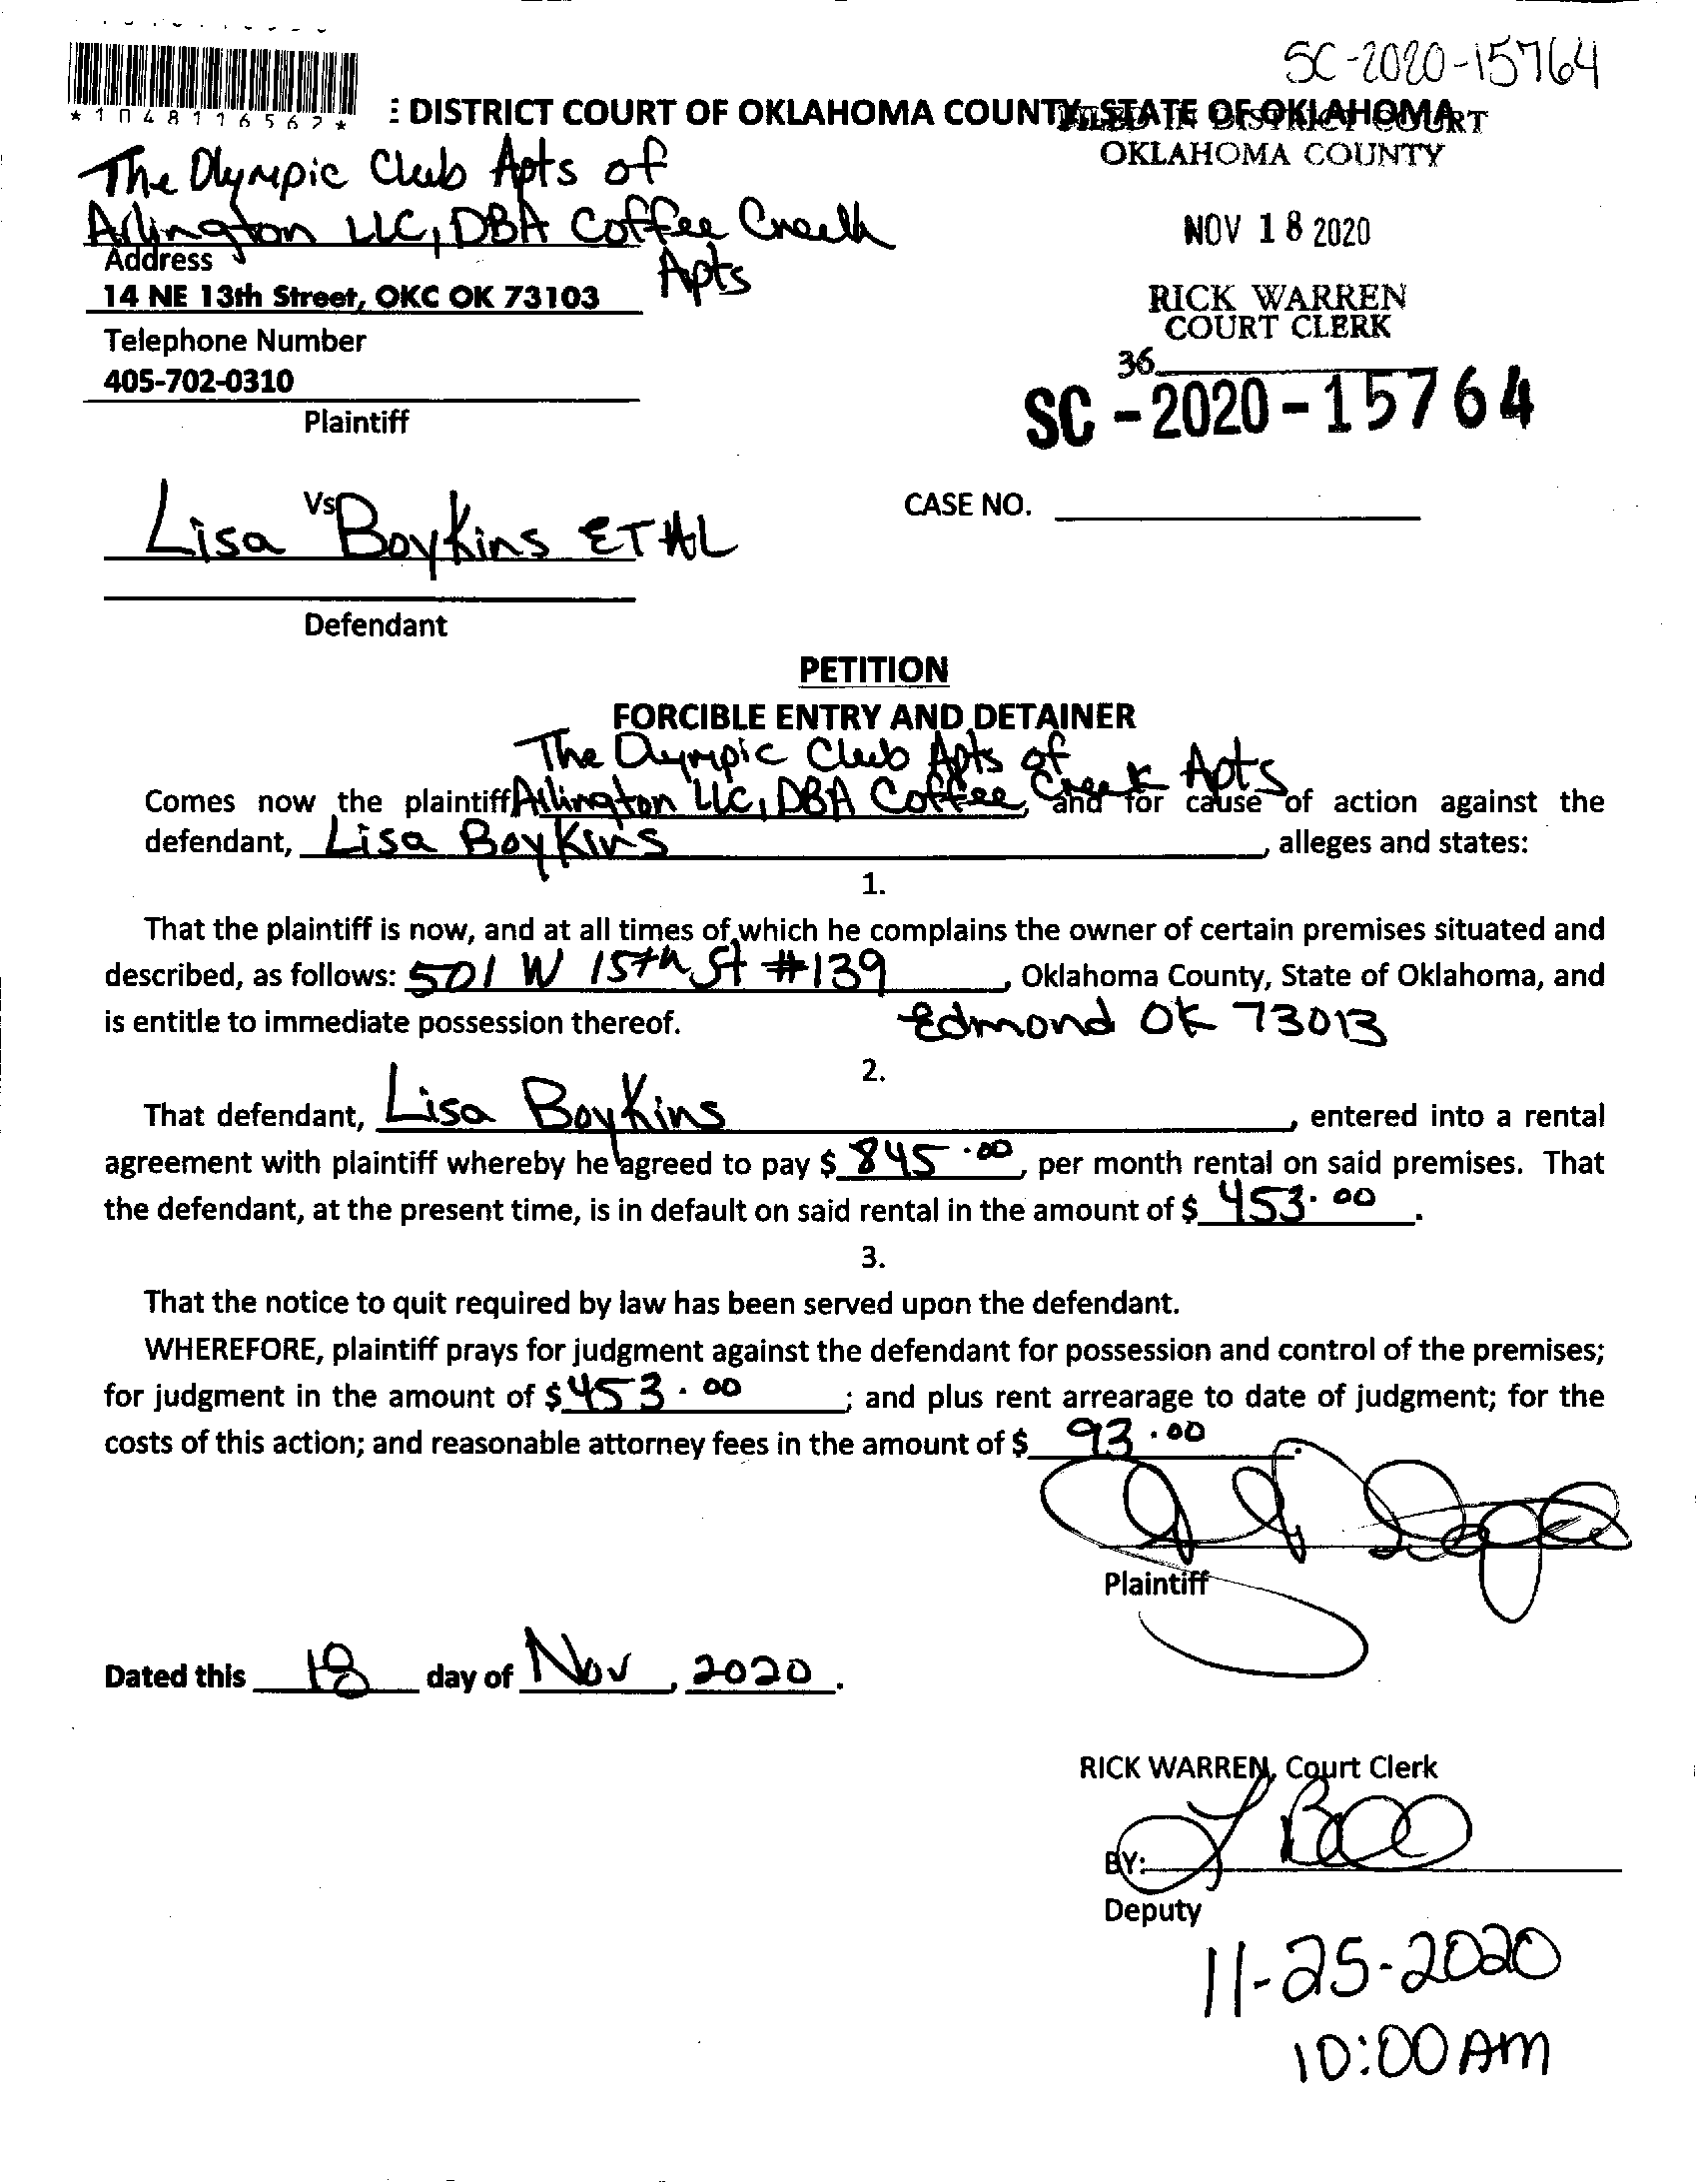 SC-2020-15764
*1048116562*
: DISTRICT COURT OF OKLAHOMA COUNTY, STATE OF OKLAHOMA
FILED IN DISTRICT COURT
OKLAHOMA COUNTY
The Olympic Club Apts of
Arlington LLC, DBA Coffee Creek
Apts
NOV 18 2020
Address
14 NE 13th Street, OKC OK 73103
RICK WARREN
COURT CLERK
Telephone Number
36
405-702-0310
SC-2020-15764
Plaintiff
Vs
CASE NO.
Lisa Boykins ETAL
Defendant
PETITION
FORCIBLE ENTRY AND DETAINER
The Olympic Club Apts of
Comes now the plaintiff Arlington LLC, DBA Coffee Creek Apts, and for cause of action against the
defendant, Lisa Boykins, alleges and states:
1.
That the plaintiff is now, and at all times of which he complains the owner of certain premises situated and
described, as follows: 501 W 15th St #139, Oklahoma County, State of Oklahoma, and
is entitle to immediate possession thereof. Edmond OK 73013
2.
That defendant, Lisa Boykins, entered into a rental
agreement with plaintiff whereby he agreed to pay $ 845.00, per month rental on said premises. That
the defendant, at the present time, is in default on said rental in the amount of $ 453.00.
3.
That the notice to quit required by law has been served upon the defendant.
WHEREFORE, plaintiff prays for judgment against the defendant for possession and control of the premises;
for judgment in the amount of $ 453.00; and plus rent arrearage to date of judgment; for the
costs of this action; and reasonable attorney fees in the amount of $ 93.00.
Plaintiff
Dated this 18 day of Nov, 2020.
RICK WARREN, Court Clerk
BY:
Deputy
11-25-2020
10:00 AM